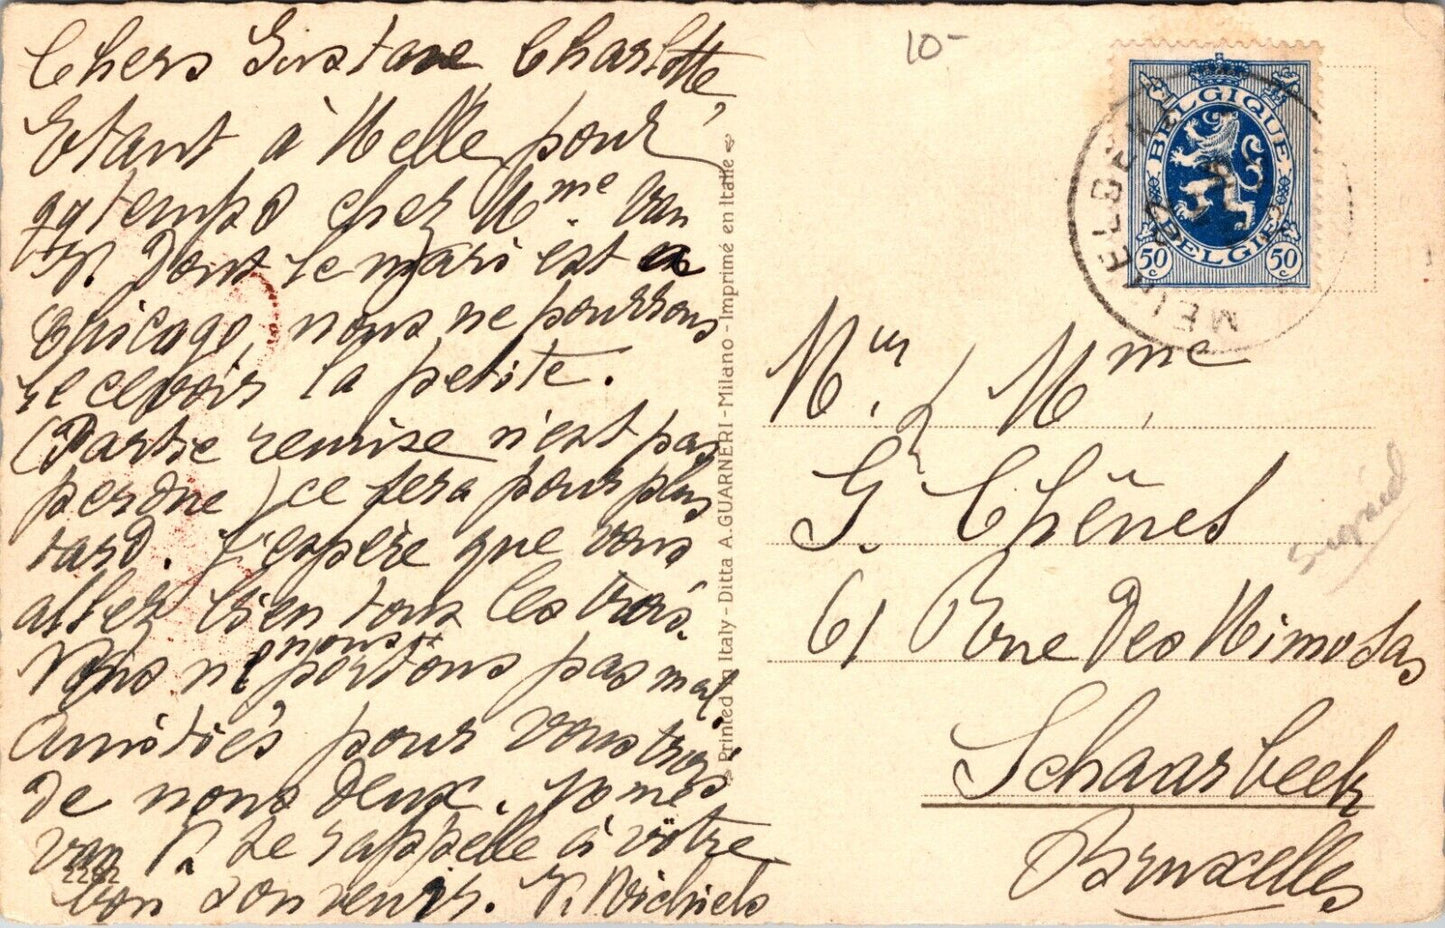 Chers Gustave Charlotte,
Etant à Melle pour
qq temps chez Mme. Van
P. Dont le mari est a
Chicago, nous ne pourrons
recevoir la petite.
(Partie remise n'est pas
perdue) ce sera pour plus
tard. J'espère que vous
allez bien tous les trois.
Nous nous portons pas mal.
Amitiés pour vous trois
de nous deux.
van P. se rappelle à vôtre
bon souvenir. Michiels
2282
Printed in Italy - Ditta A. GUARNERI - Milano - Imprimé en Italie
10-
BELGIQUE
BELGIE
50 c
50 c
MEIRELBEKE
Mr. & Mme
G. Chênes
61 Rue Des Mimosas
Schaarbeek
Bruxelles